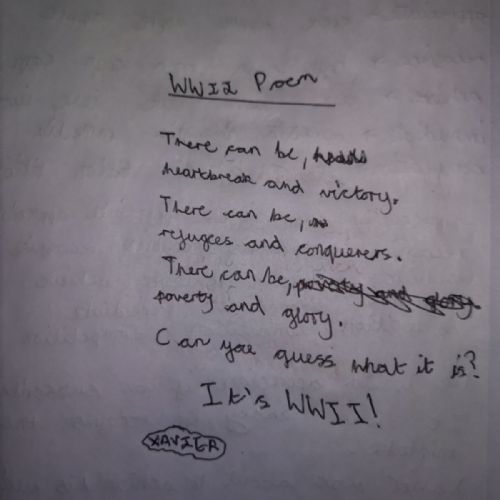 WWII Poem
There can be,
heartbreak and victory.
There can be,
refugees and conquerers.
There can be, poverty and glory
poverty and glory.
Can you guess what it is?
It's WWII!
XAVIER